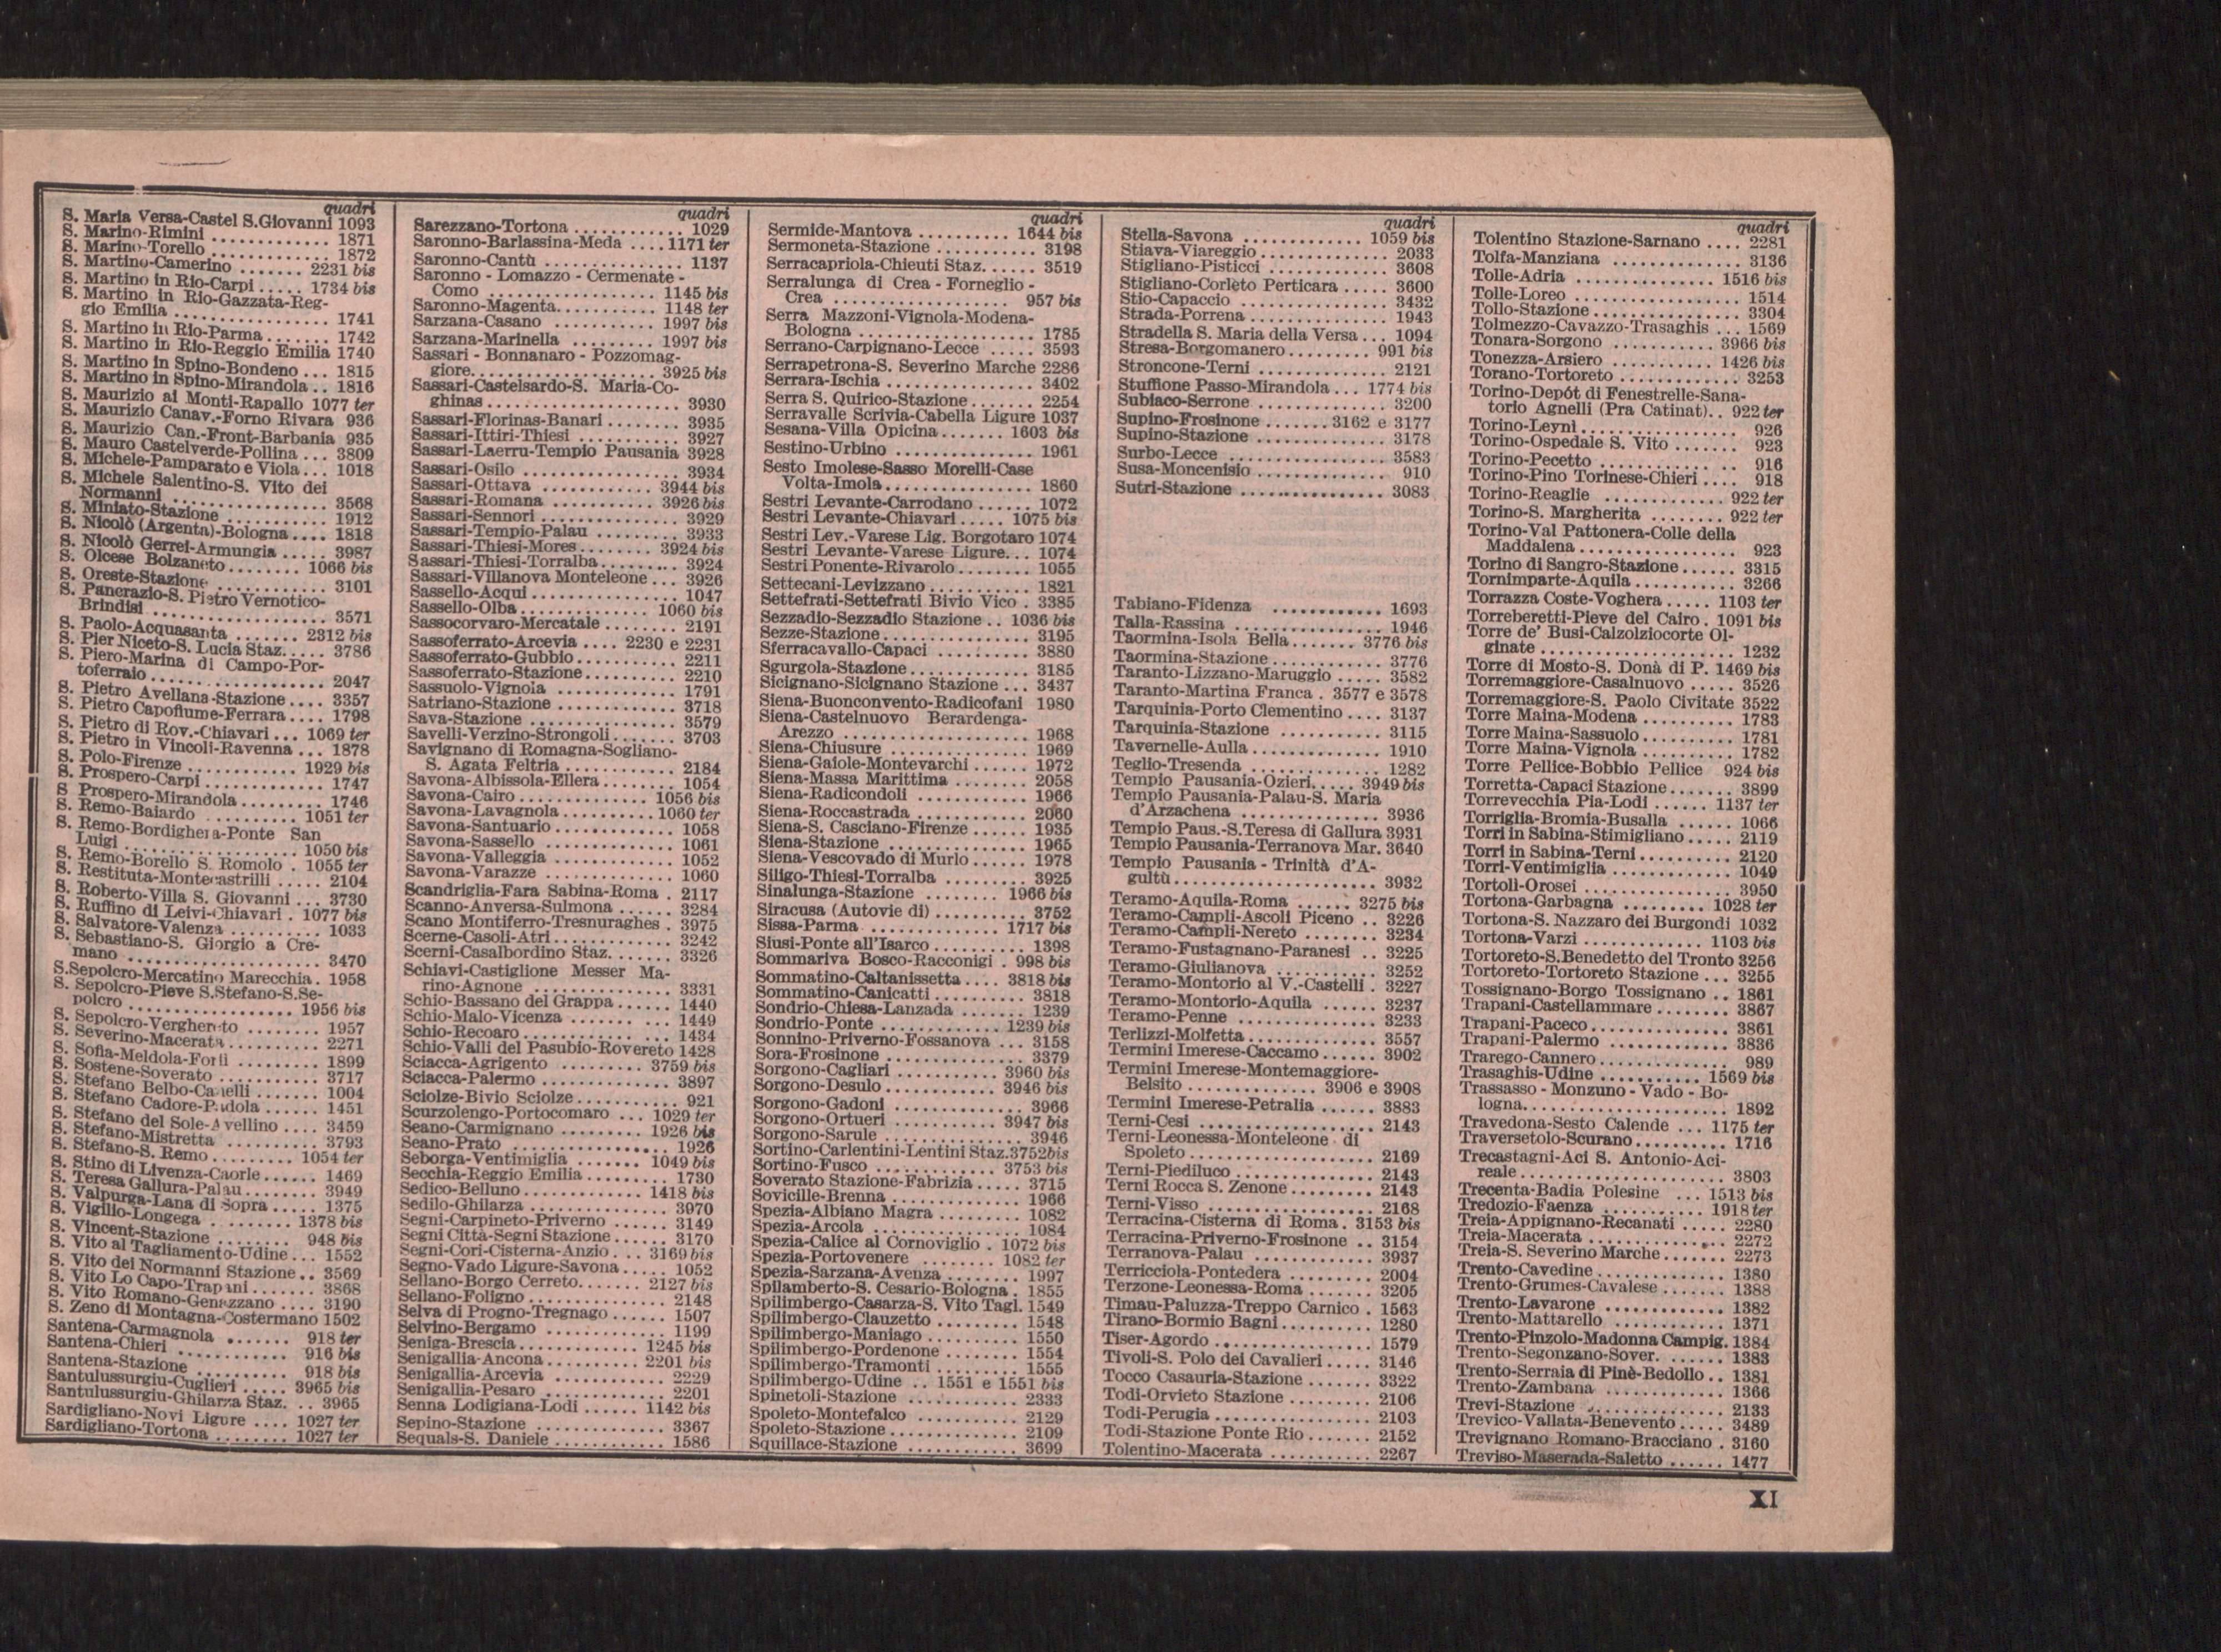 quadri
S. Maria Versa-Castel S.Giovanni 1093
S. Marino-Rimini ............. 1871
S. Marino-Torello ............. 1872
S. Martino-Camerino ....... 2231 bis
S. Martino in Rio-Carpi ..... 1734 bis
S. Martino in Rio-Gazzata-Reg-
gio Emilia ................. 1741
S. Martino in Rio-Parma ....... 1742
S. Martino in Rio-Reggio Emilia 1740
S. Martino in Spino-Bondeno ... 1815
S. Martino in Spino-Mirandola .. 1816
S. Maurizio ai Monti-Rapallo 1077 ter
S. Maurizio Canav.-Forno Rivara 936
S. Maurizio Can.-Front-Barbania 935
S. Mauro Castelverde-Pollina ... 3809
S. Michele-Pamparato e Viola ... 1018
S. Michele Salentino-S. Vito dei
Normanni .................... 3568
S. Miniato-Stazione ............ 1912
S. Nicolò (Argenta)-Bologna .... 1818
S. Nicolò Gerrei-Armungia ..... 3987
S. Olcese Bolzaneto ........ 1066 bis
S. Oreste-Stazione ............ 3101
S. Pancrazio-S. Pietro Vernotico-
Brindisi ...................... 3571
S. Paolo-Acquasanta ....... 2312 bis
S. Pier Niceto-S. Lucia Staz. .... 3786
S. Piero-Marina di Campo-Por-
toferraio ...................... 2047
S. Pietro Avellana-Stazione .... 3357
S. Pietro Capofiume-Ferrara .... 1798
S. Pietro di Rov.-Chiavari ... 1069 ter
S. Pietro in Vincoli-Ravenna ... 1878
S. Polo-Firenze ............ 1929 bis
S. Prospero-Carpi ............. 1747
S Prospero-Mirandola ......... 1746
S. Remo-Baiardo .......... 1051 ter
S. Remo-Bordighera-Ponte San
Luigi ................... 1050 bis
S. Remo-Borello S. Romolo . 1055 ter
S. Restituta-Montecastrilli ..... 2104
S. Roberto-Villa S. Giovanni ... 3730
S. Ruffino di Leivi-Chiavari . 1077 bis
S. Salvatore-Valenza .......... 1033
S. Sebastiano-S. Giorgio a Cre-
mano ........................ 3470
S.Sepolcro-Mercatino Marecchia . 1958
S. Sepolcro-Pieve S.Stefano-S.Se-
polcro .................. 1956 bis
S. Sepolcro-Verghereto ........ 1957
S. Severino-Macerata .......... 2271
S. Sofia-Meldola-Forlì ......... 1899
S. Sostene-Soverato ........... 3717
S. Stefano Belbo-Canelli ....... 1004
S. Stefano Cadore-Padola ...... 1451
S. Stefano del Sole-Avellino .... 3459
S. Stefano-Mistretta .......... 3793
S. Stefano-S. Remo ......... 1054 ter
S. Stino di Livenza-Caorle ...... 1469
S. Teresa Gallura-Palau ........ 3949
S. Valpurga-Lana di Sopra ..... 1375
S. Vigilio-Longega ......... 1378 bis
S. Vincent-Stazione ........ 948 bis
S. Vito al Tagliamento-Udine ... 1552
S. Vito dei Normanni Stazione .. 3569
S. Vito Lo Capo-Trapani ....... 3868
S. Vito Romano-Genazzano .... 3190
S. Zeno di Montagna-Costermano 1502
Santena-Carmagnola ....... 918 ter
Santena-Chieri ............ 916 bis
Santena-Stazione .......... 918 bis
Santulussurgiu-Cuglieri ..... 3965 bis
Santulussurgiu-Ghilarza Staz. .. 3965
Sardigliano-Novi Ligure .... 1027 ter
Sardigliano-Tortona ........ 1027 ter
quadri
Sarezzano-Tortona ............ 1029
Saronno-Barlassina-Meda .... 1171 ter
Saronno-Cantù ............... 1137
Saronno - Lomazzo - Cermenate -
Como .................. 1145 bis
Saronno-Magenta ........... 1148 ter
Sarzana-Casano ........... 1997 bis
Sarzana-Marinella ......... 1997 bis
Sassari - Bonnanaro - Pozzomag-
giore .................... 3925 bis
Sassari-Castelsardo-S. Maria-Co-
ghinas ...................... 3930
Sassari-Florinas-Banari ........ 3935
Sassari-Ittiri-Thiesi ........... 3927
Sassari-Laerru-Tempio Pausania 3928
Sassari-Osilo .................. 3934
Sassari-Ottava ............ 3944 bis
Sassari-Romana ........... 3926 bis
Sassari-Sennori ............... 3929
Sassari-Tempio-Palau ......... 3933
Sassari-Thiesi-Mores ........ 3924 bis
Sassari-Thiesi-Torralba ......... 3924
Sassari-Villanova Monteleone ... 3926
Sassello-Acqui ................. 1047
Sassello-Olba .............. 1060 bis
Sassocorvaro-Mercatale ........ 2191
Sassoferrato-Arcevia .... 2230 e 2231
Sassoferrato-Gubbio ........... 2211
Sassoferrato-Stazione .......... 2210
Sassuolo-Vignola ............. 1791
Satriano-Stazione ............. 3718
Sava-Stazione ................ 3579
Savelli-Verzino-Strongoli ....... 3703
Savignano di Romagna-Sogliano-
S. Agata Feltria ............ 2184
Savona-Albissola-Ellera ........ 1054
Savona-Cairo .............. 1056 bis
Savona-Lavagnola .......... 1060 ter
Savona-Santuario ............. 1058
Savona-Sassello .............. 1061
Savona-Valleggia ............. 1052
Savona-Varazze .............. 1060
Scandriglia-Fara Sabina-Roma . 2117
Scanno-Anversa-Sulmona ...... 3284
Scano Montiferro-Tresnuraghes . 3975
Scerne-Casoli-Atri ............. 3242
Scerni-Casalbordino Staz. ...... 3326
Schiavi-Castiglione Messer Ma-
rino-Agnone ................ 3331
Schio-Bassano del Grappa ...... 1440
Schio-Malo-Vicenza ........... 1449
Schio-Recoaro ................ 1434
Schio-Valli del Pasubio-Rovereto 1428
Sciacca-Agrigento ......... 3759 bis
Sciacca-Palermo ............... 3897
Sciolze-Bivio Sciolze ........... 921
Scurzolengo-Portocomaro ... 1029 ter
Seano-Carmignano ......... 1926 bis
Seano-Prato .................. 1926
Seborga-Ventimiglia ....... 1049 bis
Secchia-Reggio Emilia ......... 1730
Sedico-Belluno ............. 1418 bis
Sedilo-Ghilarza ............... 3970
Segni-Carpineto-Priverno ...... 3149
Segni Città-Segni Stazione ...... 3170
Segni-Cori-Cisterna-Anzio ... 3169 bis
Segno-Vado Ligure-Savona ..... 1052
Sellano-Borgo Cerreto ....... 2127 bis
Sellano-Foligno ............... 2148
Selva di Progno-Tregnago ...... 1507
Selvino-Bergamo ............. 1199
Seniga-Brescia .............. 1245 bis
Senigallia-Ancona .......... 2201 bis
Senigallia-Arcevia ............. 2229
Senigallia-Pesaro ............. 2201
Senna Lodigiana-Lodi ...... 1142 bis
Sepino-Stazione .............. 3367
Sequals-S. Daniele ............ 1586
quadri
Sermide-Mantova .......... 1644 bis
Sermoneta-Stazione ............ 3198
Serracapriola-Chieuti Staz. ..... 3519
Serralunga di Crea - Forneglio -
Crea .................. 957 bis
Serra Mazzoni-Vignola-Modena-
Bologna ................... 1785
Serrano-Carpignano-Lecce ..... 3593
Serrapetrona-S. Severino Marche 2286
Serrara-Ischia ................. 3402
Serra S. Quirico-Stazione ....... 2254
Serravalle Scrivia-Cabella Ligure 1037
Sesana-Villa Opicina ....... 1603 bis
Sestino-Urbino ............... 1961
Sesto Imolese-Sasso Morelli-Case
Volta-Imola ................ 1860
Sestri Levante-Carrodano ...... 1072
Sestri Levante-Chiavari ..... 1075 bis
Sestri Lev.-Varese Lig. Borgotaro 1074
Sestri Levante-Varese Ligure ... 1074
Sestri Ponente-Rivarolo ........ 1055
Settecani-Levizzano ........... 1821
Settefrati-Settefrati Bivio Vico . 3385
Sezzadio-Sezzadio Stazione .. 1036 bis
Sezze-Stazione ................ 3195
Sferracavallo-Capaci ........... 3880
Sgurgola-Stazione ............. 3185
Sicignano-Sicignano Stazione ... 3437
Siena-Buonconvento-Radicofani 1980
Siena-Castelnuovo Berardenga-
Arezzo .................... 1968
Siena-Chiusure ............... 1969
Siena-Gaiole-Montevarchi ...... 1972
Siena-Massa Marittima ........ 2058
Siena-Radicondoli ............ 1966
Siena-Roccastrada ............ 2060
Siena-S. Casciano-Firenze ...... 1935
Siena-Stazione ............... 1965
Siena-Vescovado di Murlo ...... 1978
Siligo-Thiesi-Torralba ......... 3925
Sinalunga-Stazione ........ 1966 bis
Siracusa (Autovie di) .......... 3752
Sissa-Parma .............. 1717 bis
Siusi-Ponte all'Isarco .......... 1398
Sommariva Bosco-Racconigi . 998 bis
Sommatino-Caltanissetta .... 3818 bis
Sommatino-Canicattì .......... 3818
Sondrio-Chiesa-Lanzada ....... 1239
Sondrio-Ponte ............ 1239 bis
Sonnino-Priverno-Fossanova ... 3158
Sora-Frosinone ............... 3379
Sorgono-Cagliari ........... 3960 bis
Sorgono-Desulo ............ 3946 bis
Sorgono-Gadoni .............. 3966
Sorgono-Ortueri ............ 3947 bis
Sorgono-Sarule ............... 3946
Sortino-Carlentini-Lentini Staz.3752bis
Sortino-Fusco ............ 3753 bis
Soverato Stazione-Fabrizia ..... 3715
Sovicille-Brenna .............. 1966
Spezia-Albiano Magra ......... 1082
Spezia-Arcola ................ 1084
Spezia-Calice al Cornoviglio . 1072 bis
Spezia-Portovenere ........ 1082 ter
Spezia-Sarzana-Avenza ........ 1997
Spilamberto-S. Cesario-Bologna . 1855
Spilimbergo-Casarza-S. Vito Tagl. 1549
Spilimbergo-Clauzetto ......... 1548
Spilimbergo-Maniago .......... 1550
Spilimbergo-Pordenone ........ 1554
Spilimbergo-Tramonti ......... 1555
Spilimbergo-Udine .. 1551 e 1551 bis
Spinetoli-Stazione ............. 2333
Spoleto-Montefalco ........... 2129
Spoleto-Stazione .............. 2109
Squillace-Stazione ............ 3699
quadri
Stella-Savona ............ 1059 bis
Stiava-Viareggio .............. 2033
Stigliano-Pisticci ............. 3608
Stigliano-Corlèto Perticara ..... 3600
Stio-Capaccio ................ 3432
Strada-Porrena ............... 1943
Stradella S. Maria della Versa ... 1094
Stresa-Borgomanero ......... 991 bis
Stroncone-Terni .............. 2121
Stuffione Passo-Mirandola ... 1774 bis
Subiaco-Serrone .............. 3200
Supino-Frosinone ....... 3162 e 3177
Supino-Stazione .............. 3178
Surbo-Lecce ................. 3583
Susa-Moncenisio .............. 910
Sutri-Stazione ................ 3083
Tabiano-Fidenza ............ 1693
Talla-Rassina ................. 1946
Taormina-Isola Bella ....... 3776 bis
Taormina-Stazione ............ 3776
Taranto-Lizzano-Maruggio ..... 3582
Taranto-Martina Franca . 3577 e 3578
Tarquinia-Porto Clementino .... 3137
Tarquinia-Stazione ............ 3115
Tavernelle-Aulla .............. 1910
Teglio-Tresenda .............. 1282
Tempio Pausania-Ozieri ..... 3949 bis
Tempio Pausania-Palau-S. Maria
d'Arzachena ............... 3936
Tempio Paus.-S.Teresa di Gallura 3931
Tempio Pausania-Terranova Mar. 3640
Tempio Pausania - Trinità d'A-
gultù ...................... 3932
Teramo-Aquila-Roma ...... 3275 bis
Teramo-Campli-Ascoli Piceno .. 3226
Teramo-Campli-Nereto ........ 3234
Teramo-Fustagnano-Paranesi .. 3225
Teramo-Giulianova ........... 3252
Teramo-Montorio al V.-Castelli . 3227
Teramo-Montorio-Aquila ...... 3237
Teramo-Penne ............... 3233
Terlizzi-Molfetta ............... 3557
Termini Imerese-Caccamo ...... 3902
Termini Imerese-Montemaggiore-
Belsito ............. 3906 e 3908
Termini Imerese-Petralia ...... 3883
Terni-Cesi ................... 2143
Terni-Leonessa-Monteleone di
Spoleto .................... 2169
Terni-Piediluco ............... 2143
Terni Rocca S. Zenone ......... 2143
Terni-Visso .................. 2168
Terracina-Cisterna di Roma . 3153 bis
Terracina-Priverno-Frosinone .. 3154
Terranova-Palau ............. 3937
Terricciola-Pontedera ......... 2004
Terzone-Leonessa-Roma ....... 3205
Timau-Paluzza-Treppo Carnico . 1563
Tirano-Bormio Bagni .......... 1280
Tiser-Agordo ................. 1579
Tivoli-S. Polo dei Cavalieri ..... 3146
Tocco Casauria-Stazione ....... 3322
Todi-Orvieto Stazione ......... 2106
Todi-Perugia ................. 2103
Todi-Stazione Ponte Rio ....... 2152
Tolentino-Macerata ........... 2267
quadri
Tolentino Stazione-Sarnano .... 2281
Tolfa-Manziana .............. 3136
Tolle-Adria ............... 1516 bis
Tolle-Loreo .................. 1514
Tollo-Stazione ................ 3304
Tolmezzo-Cavazzo-Trasaghis ... 1569
Tonara-Sorgono ........... 3966 bis
Tonezza-Arsiero ........... 1426 bis
Torano-Tortoreto ............ 3253
Torino-Depôt di Fenestrelle-Sana-
torio Agnelli (Pra Catinat) .. 922 ter
Torino-Leynì ................. 926
Torino-Ospedale S. Vito ....... 923
Torino-Pecetto ............... 916
Torino-Pino Torinese-Chieri .... 918
Torino-Reaglie ............ 922 ter
Torino-S. Margherita ........ 922 ter
Torino-Val Pattonera-Colle della
Maddalena ................ 923
Torino di Sangro-Stazione ...... 3315
Tornimparte-Aquila ........... 3266
Torrazza Coste-Voghera ..... 1103 ter
Torreberetti-Pieve del Cairo . 1091 bis
Torre de' Busi-Calzolziocorte Ol-
ginate ..................... 1232
Torre di Mosto-S. Donà di P. 1469 bis
Torremaggiore-Casalnuovo ..... 3526
Torremaggiore-S. Paolo Civitate 3522
Torre Maina-Modena .......... 1783
Torre Maina-Sassuolo .......... 1781
Torre Maina-Vignola .......... 1782
Torre Pellice-Bobbio Pellice 924 bis
Torretta-Capaci Stazione ....... 3899
Torrevecchia Pia-Lodi ...... 1137 ter
Torriglia-Bromia-Busalla ...... 1066
Torri in Sabina-Stimigliano ..... 2119
Torri in Sabina-Terni .......... 2120
Torri-Ventimiglia ............. 1049
Tortolì-Orosei ................ 3950
Tortona-Garbagna ......... 1028 ter
Tortona-S. Nazzaro dei Burgondi 1032
Tortona-Varzi ............ 1103 bis
Tortoreto-S.Benedetto del Tronto 3256
Tortoreto-Tortoreto Stazione ... 3255
Tossignano-Borgo Tossignano .. 1861
Trapani-Castellammare ........ 3867
Trapani-Paceco ............... 3861
Trapani-Palermo ............. 3836
Trarego-Cannero .............. 989
Trasaghis-Udine ........... 1569 bis
Trassasso - Monzuno - Vado - Bo-
logna ...................... 1892
Travedona-Sesto Calende ... 1175 ter
Traversetolo-Scurano .......... 1716
Trecastagni-Aci S. Antonio-Aci-
reale ...................... 3803
Trecenta-Badia Polesine ... 1513 bis
Tredozio-Faenza ........... 1918 ter
Treia-Appignano-Recanati ..... 2280
Treia-Macerata ............... 2272
Treia-S. Severino Marche ....... 2273
Trento-Cavedine .............. 1380
Trento-Grumes-Cavalese ....... 1388
Trento-Lavarone ............. 1382
Trento-Mattarello ............ 1371
Trento-Pinzolo-Madonna Campig. 1384
Trento-Segonzano-Sover. ...... 1383
Trento-Serraia di Pinè-Bedollo .. 1381
Trento-Zambana ............. 1366
Trevi-Stazione ............... 2133
Trevico-Vallata-Benevento ..... 3489
Trevignano Romano-Bracciano . 3160
Treviso-Maserada-Saletto ...... 1477
XI